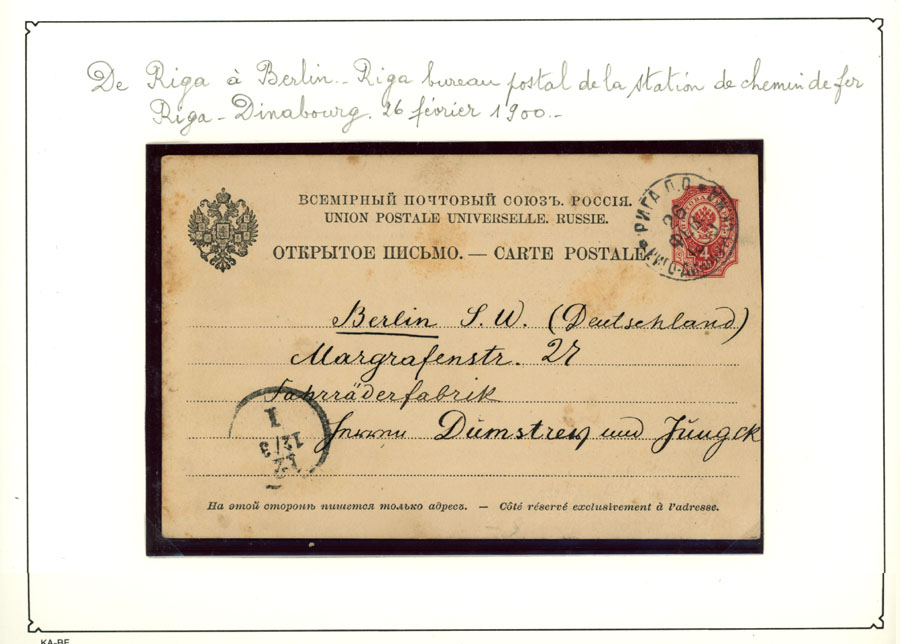 De Riga à Berlin.- Riga bureau postal de la station de chemin de fer
Riga - Dinabourg. 26 février 1900.-
ВСЕМІРНЫЙ ПОЧТОВЫЙ СОЮЗЪ. РОССІЯ.
UNION POSTALE UNIVERSELLE. RUSSIE.
ОТКРЫТОЕ ПИСЬМО. — CARTE POSTALE.
РИГА П.О.
26
4
Berlin S. W. (Deutschland)
Margrafenstr. 27
Fahrräderfabrik
Herrn Dumstrey und Jungck
I
12/3
На этой сторонѣ пишется только адресъ. — Côté réservé exclusivement à l'adresse.
KA-BE